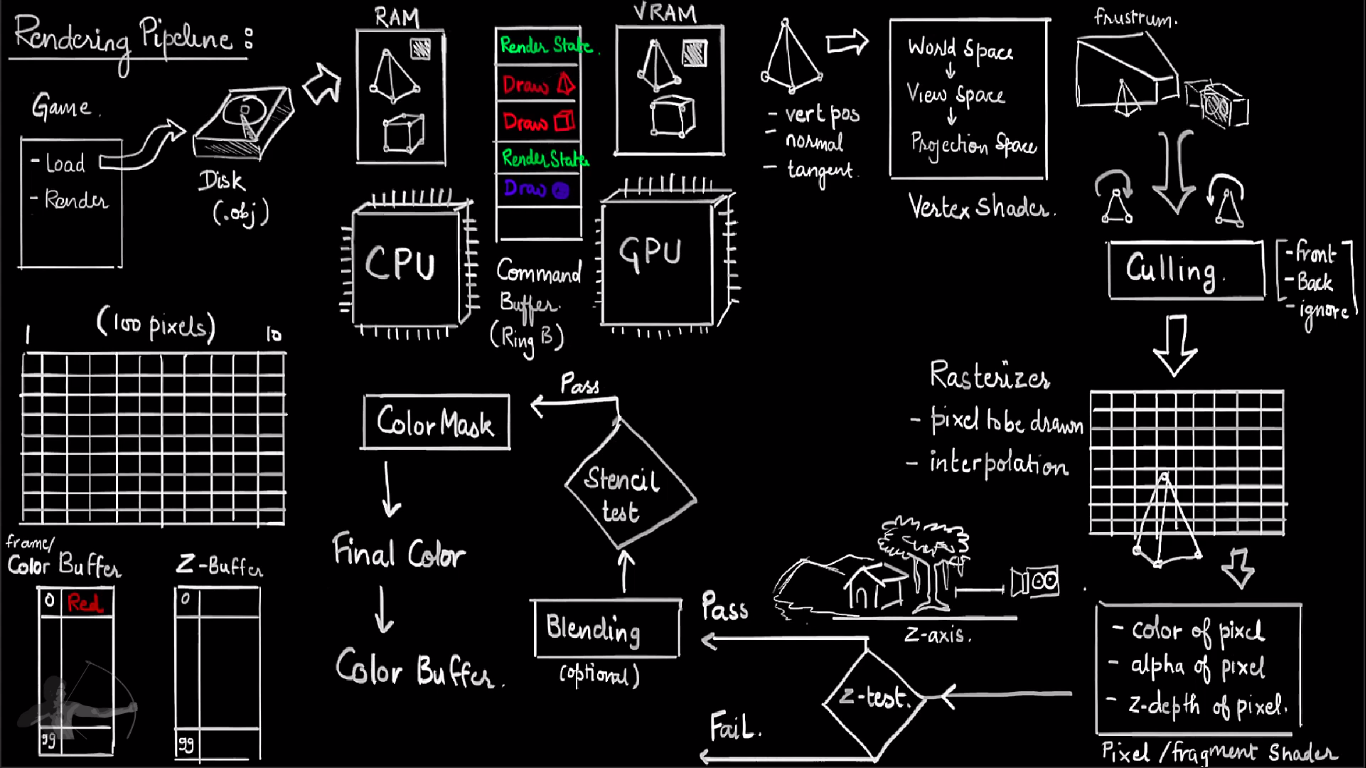 Rendering Pipeline :
Game.
- Load
- Render
Disk
(.obj)
RAM
CPU
Render State.
Draw
Draw
Render State
Draw
Command
Buffer.
(Ring B)
VRAM
GPU
- vert pos
- normal
- tangent.
World Space
View Space
Projection Space
Vertex Shader.
frustrum.
Culling.
- front
- Back
- ignore
Rasterizer
- pixel to be drawn
- interpolation
- color of pixel
- alpha of pixel
- z-depth of pixel.
Pixel / fragment Shader
z-axis.
z-test.
Pass
Fail.
Blending
(optional)
Stencil
test
Pass
Color Mask
Final Color
Color Buffer.
(100 pixels)
1
10
frame/
Color Buffer
0 Red
99
Z-Buffer
0
99